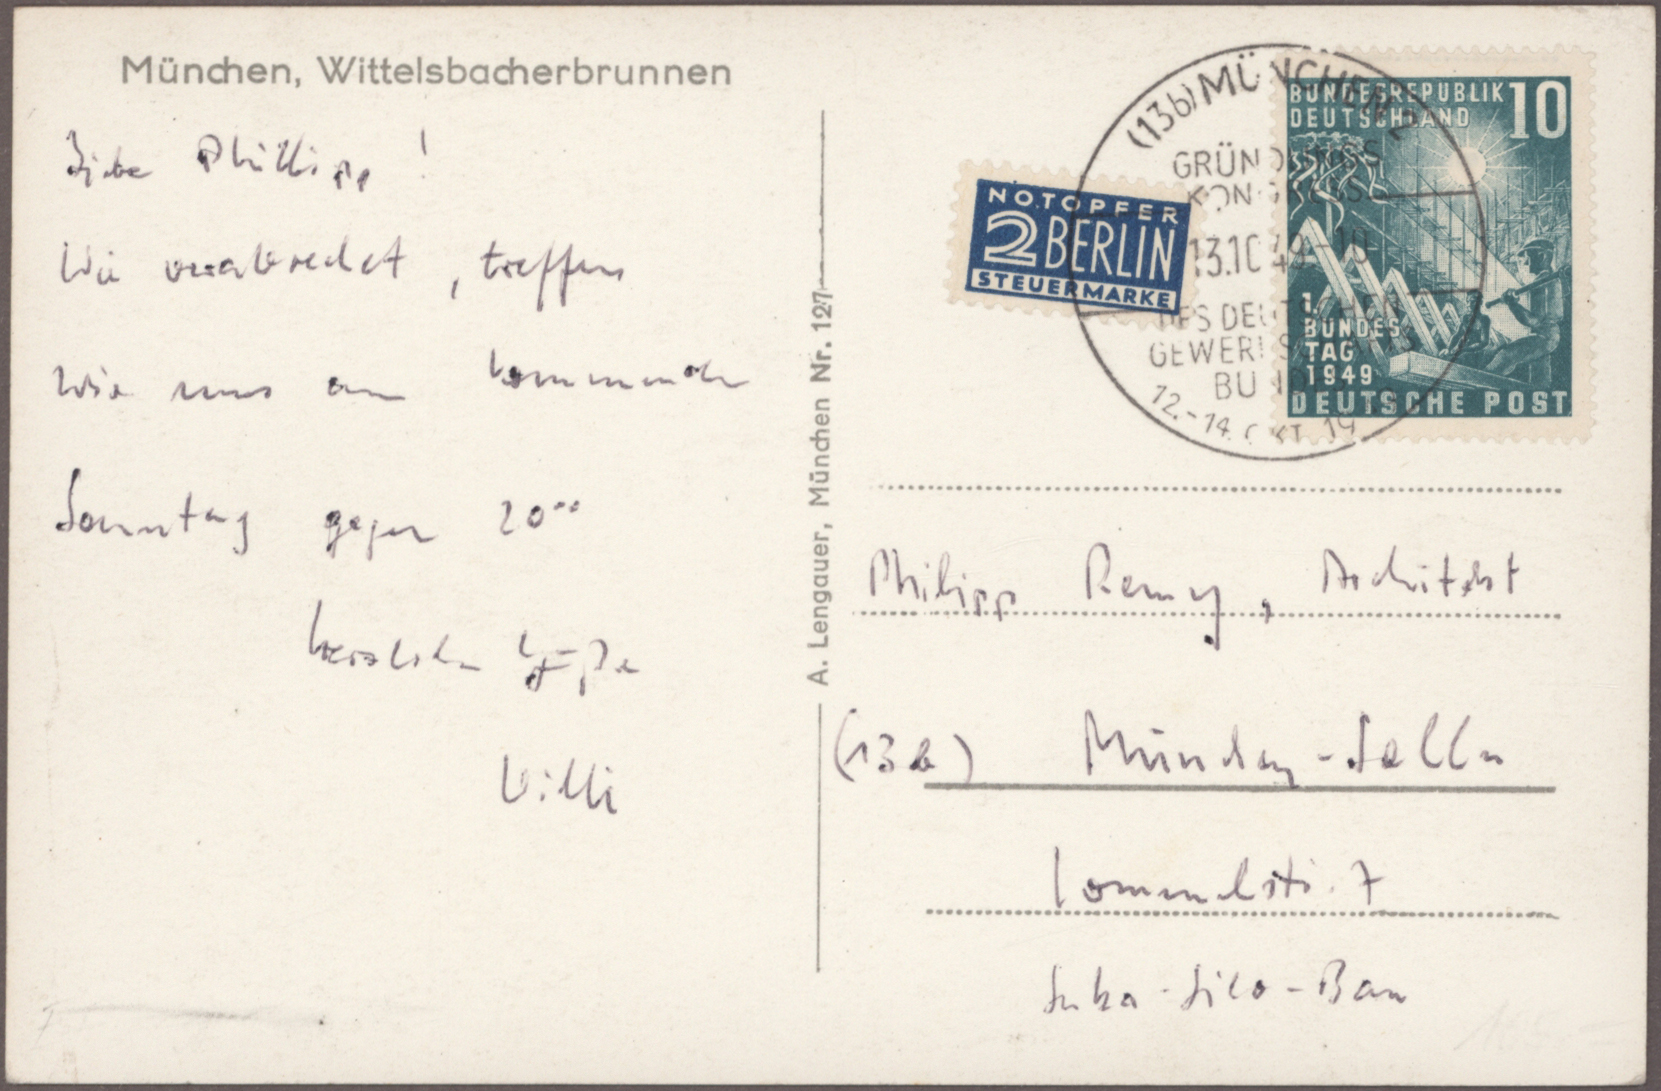 München, Wittelsbacherbrunnen
Liebe Phillipp!
Wie verabredet, treffen
wir uns am kommenden
Sonntag gegen 20⁰⁰
herzliche Grüße
Willi
A. Lengauer, München Nr. 127
NOTOPFER
2 BERLIN
STEUERMARKE
(13b) MÜNCHEN 2
GRÜNDUNGS
KONGRESS
13.10.49-10
DES DEUTSCHEN
GEWERKSCHAFTS
BUNDES
12.-14. OKT. 19
BUNDESREPUBLIK 10
DEUTSCHLAND
1.
BUNDES
TAG
1949
DEUTSCHE POST
Philipp Remy, Architekt
(13b) München-Solln
7
Silo-Bau